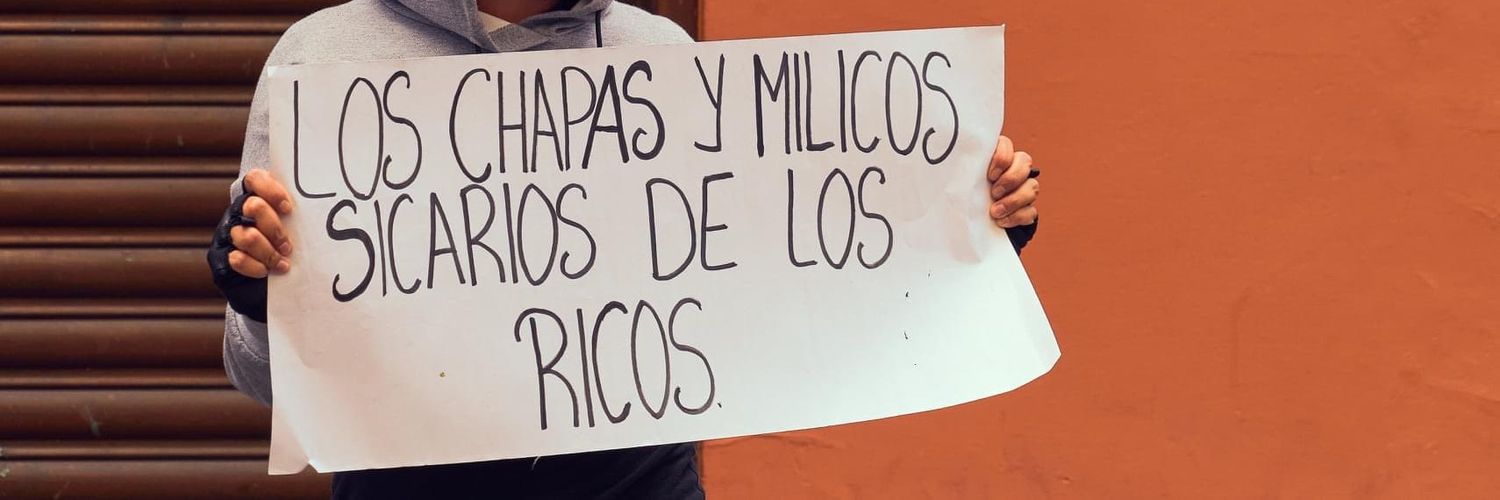 LOS CHAPAS Y MILICOS
SICARIOS DE LOS
RICOS.